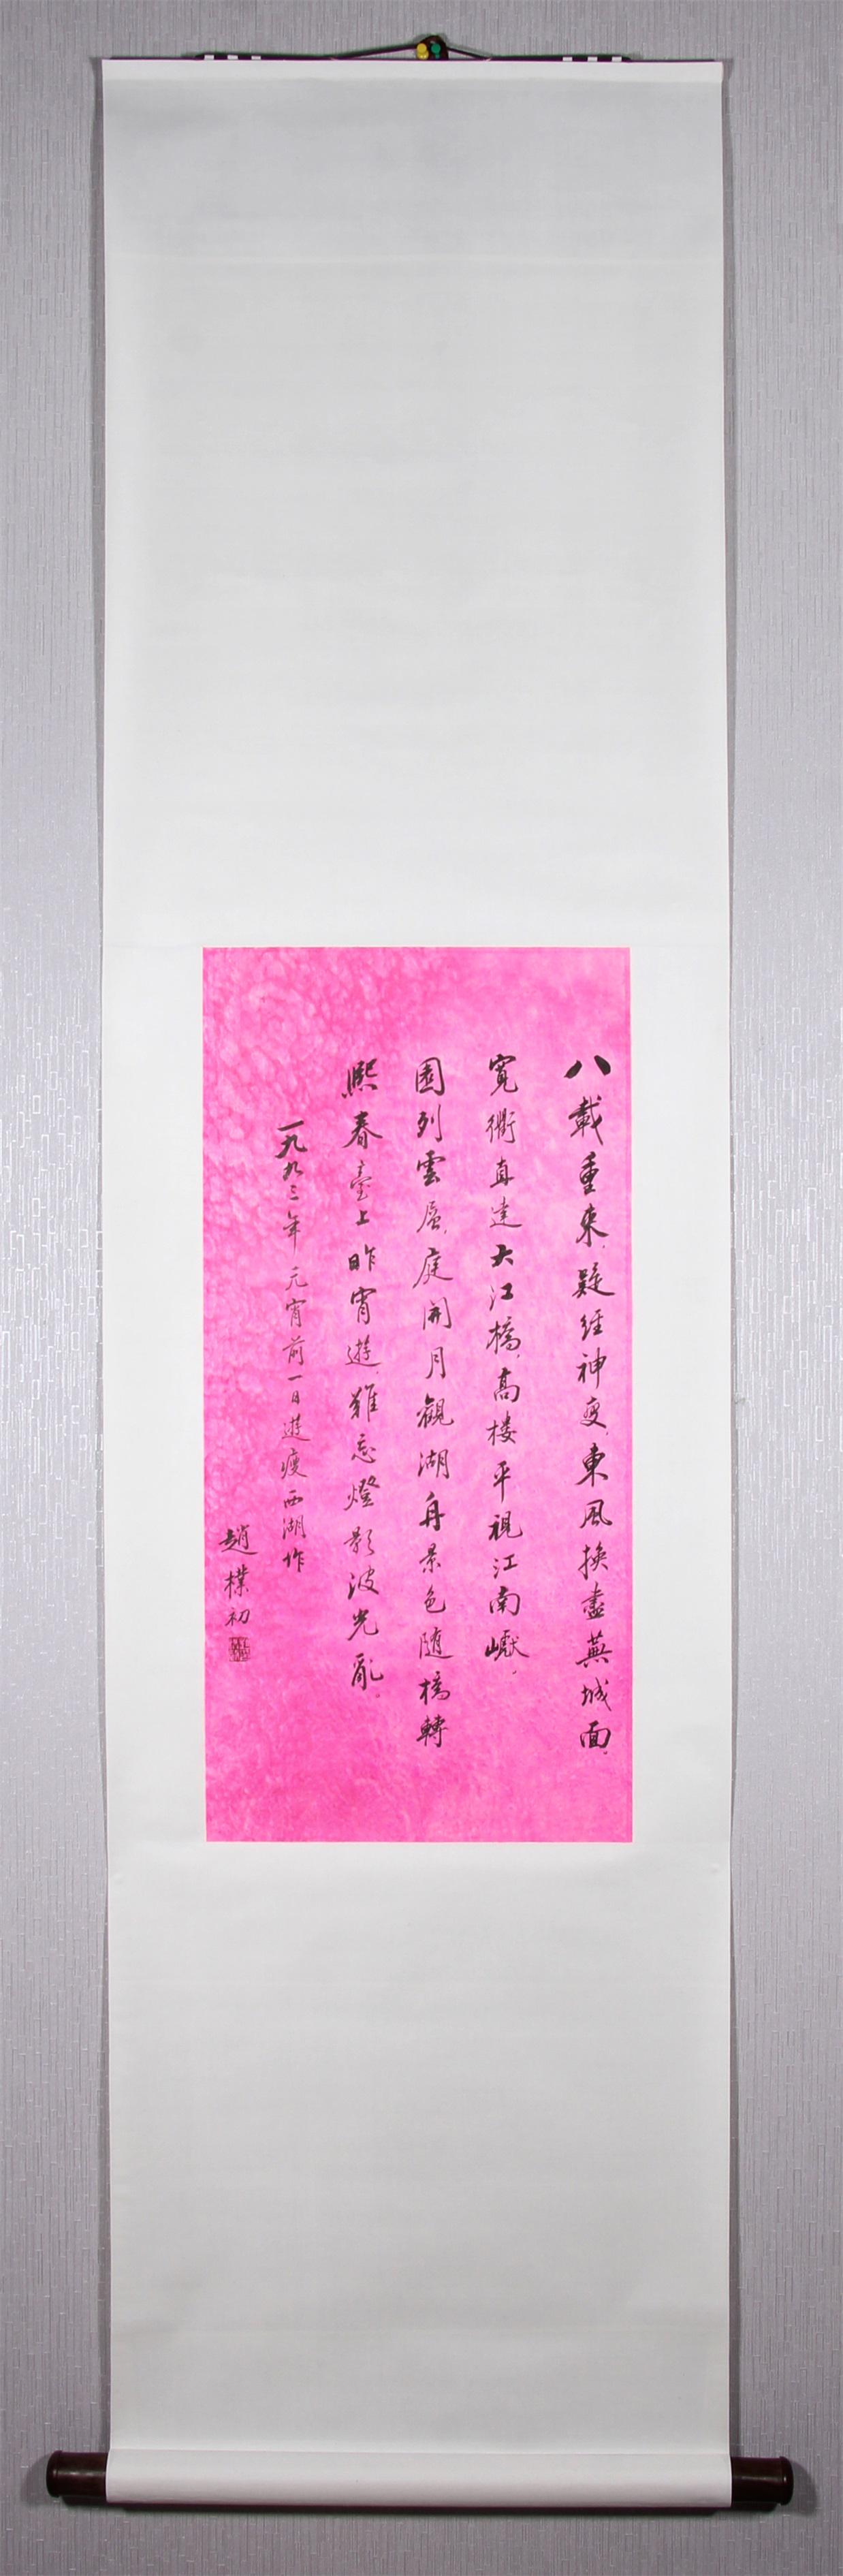 八載重來疑經神變東風換盡蕪城面
寬衢直達大江橋高楼平視江南巘
園列雲屏庭開月觀湖舟景色随橋轉
熙春臺上昨宵遊難忘燈影波光亂
一九九三年元宵前一日遊瘦西湖作
趙樸初